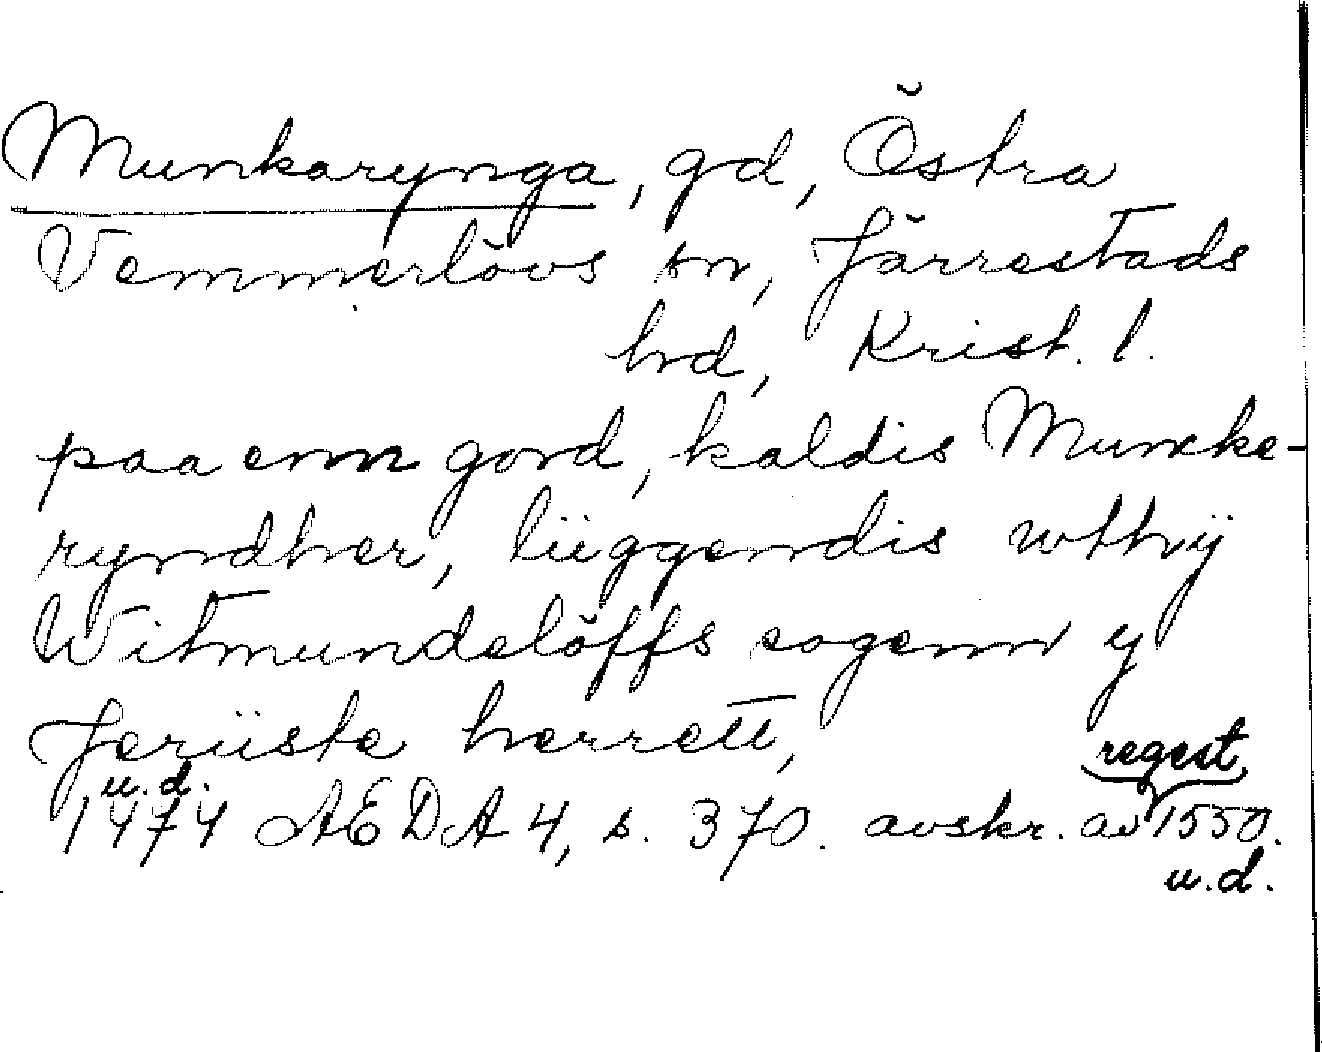 Munkarynga, gd, Östra
Vemmerlövs sn, Järrestads
hrd, Krist. l.
paa enn gord, kaldis Muncke-
ryndher, liiggendis wthÿ
Witmundelöffs sogenn y
Jeriiste herrett,
u.d. regest
1474 AEDA 4, s. 370. avskr. av 1550.
u.d.